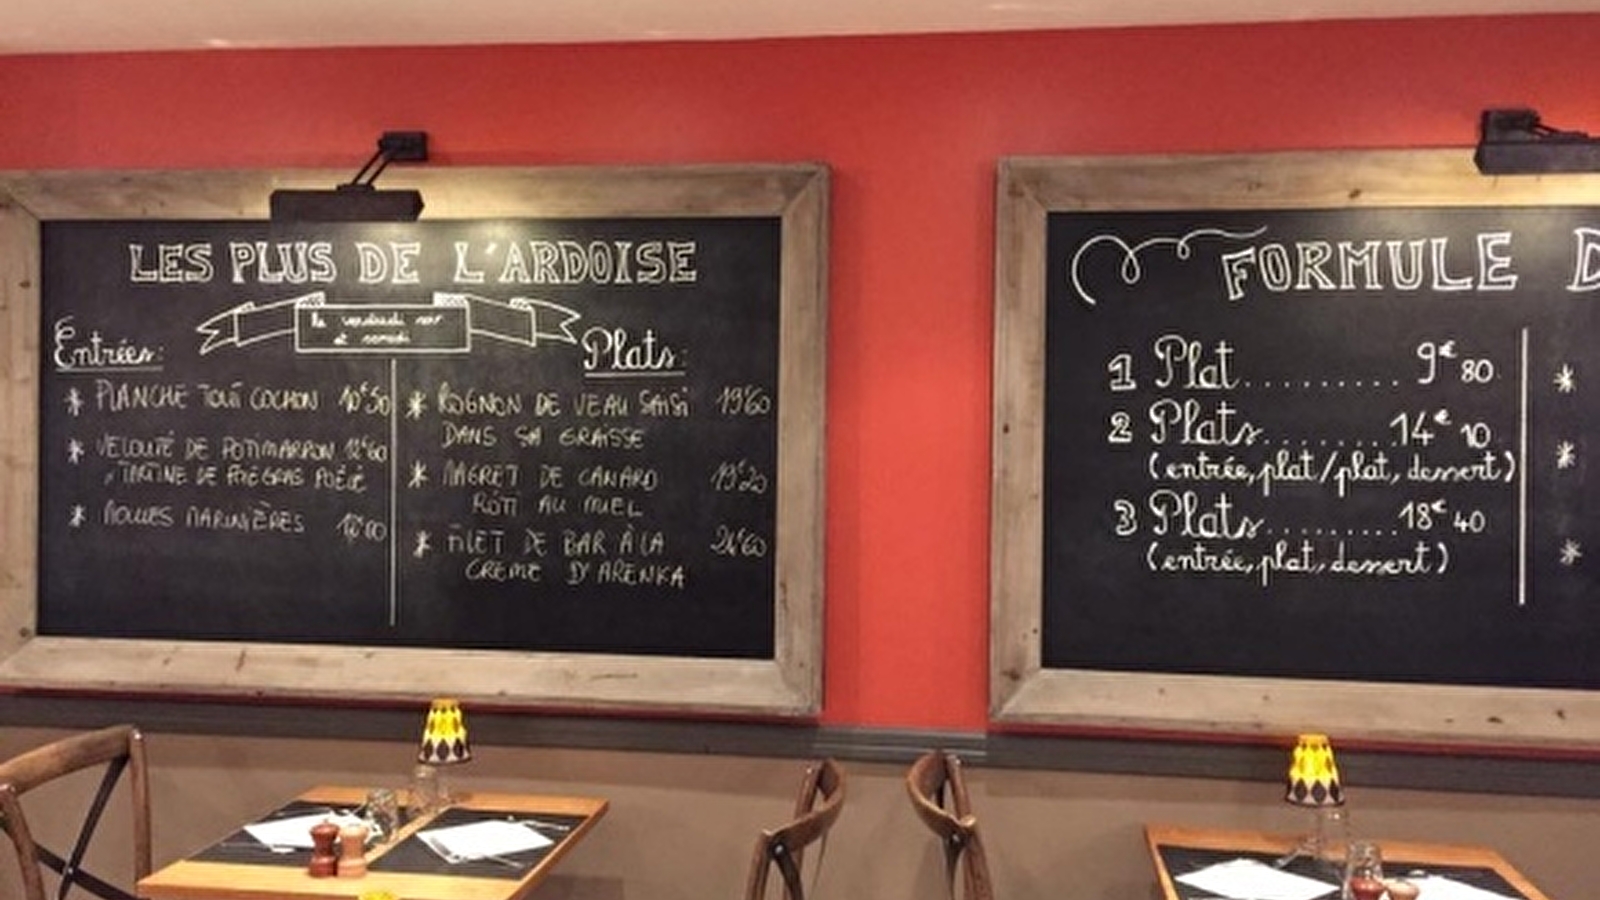 LES PLUS DE L'ARDOISE
le vendredi soir
et samedi
Entrées:
* PLANCHE TOUT COCHON 10€50
* VELOUTÉ DE POTIMARRON 12€60
, TARTINE DE FOIE GRAS POÊLÉ
* MOULES MARINIÈRES
Plats:
* ROGNON DE VEAU SAISI 19€60
DANS SA GRAISSE
* MAGRET DE CANARD 19€20
RÔTI AU MIEL
* FILET DE BAR À LA 24€60
CREME D'ARENKA
FORMULE D
1 Plat.......... 9€80
2 Plats........14€10
(entrée, plat/plat, dessert)
3 Plats.........18€40
(entrée, plat, dessert)
*
*
*